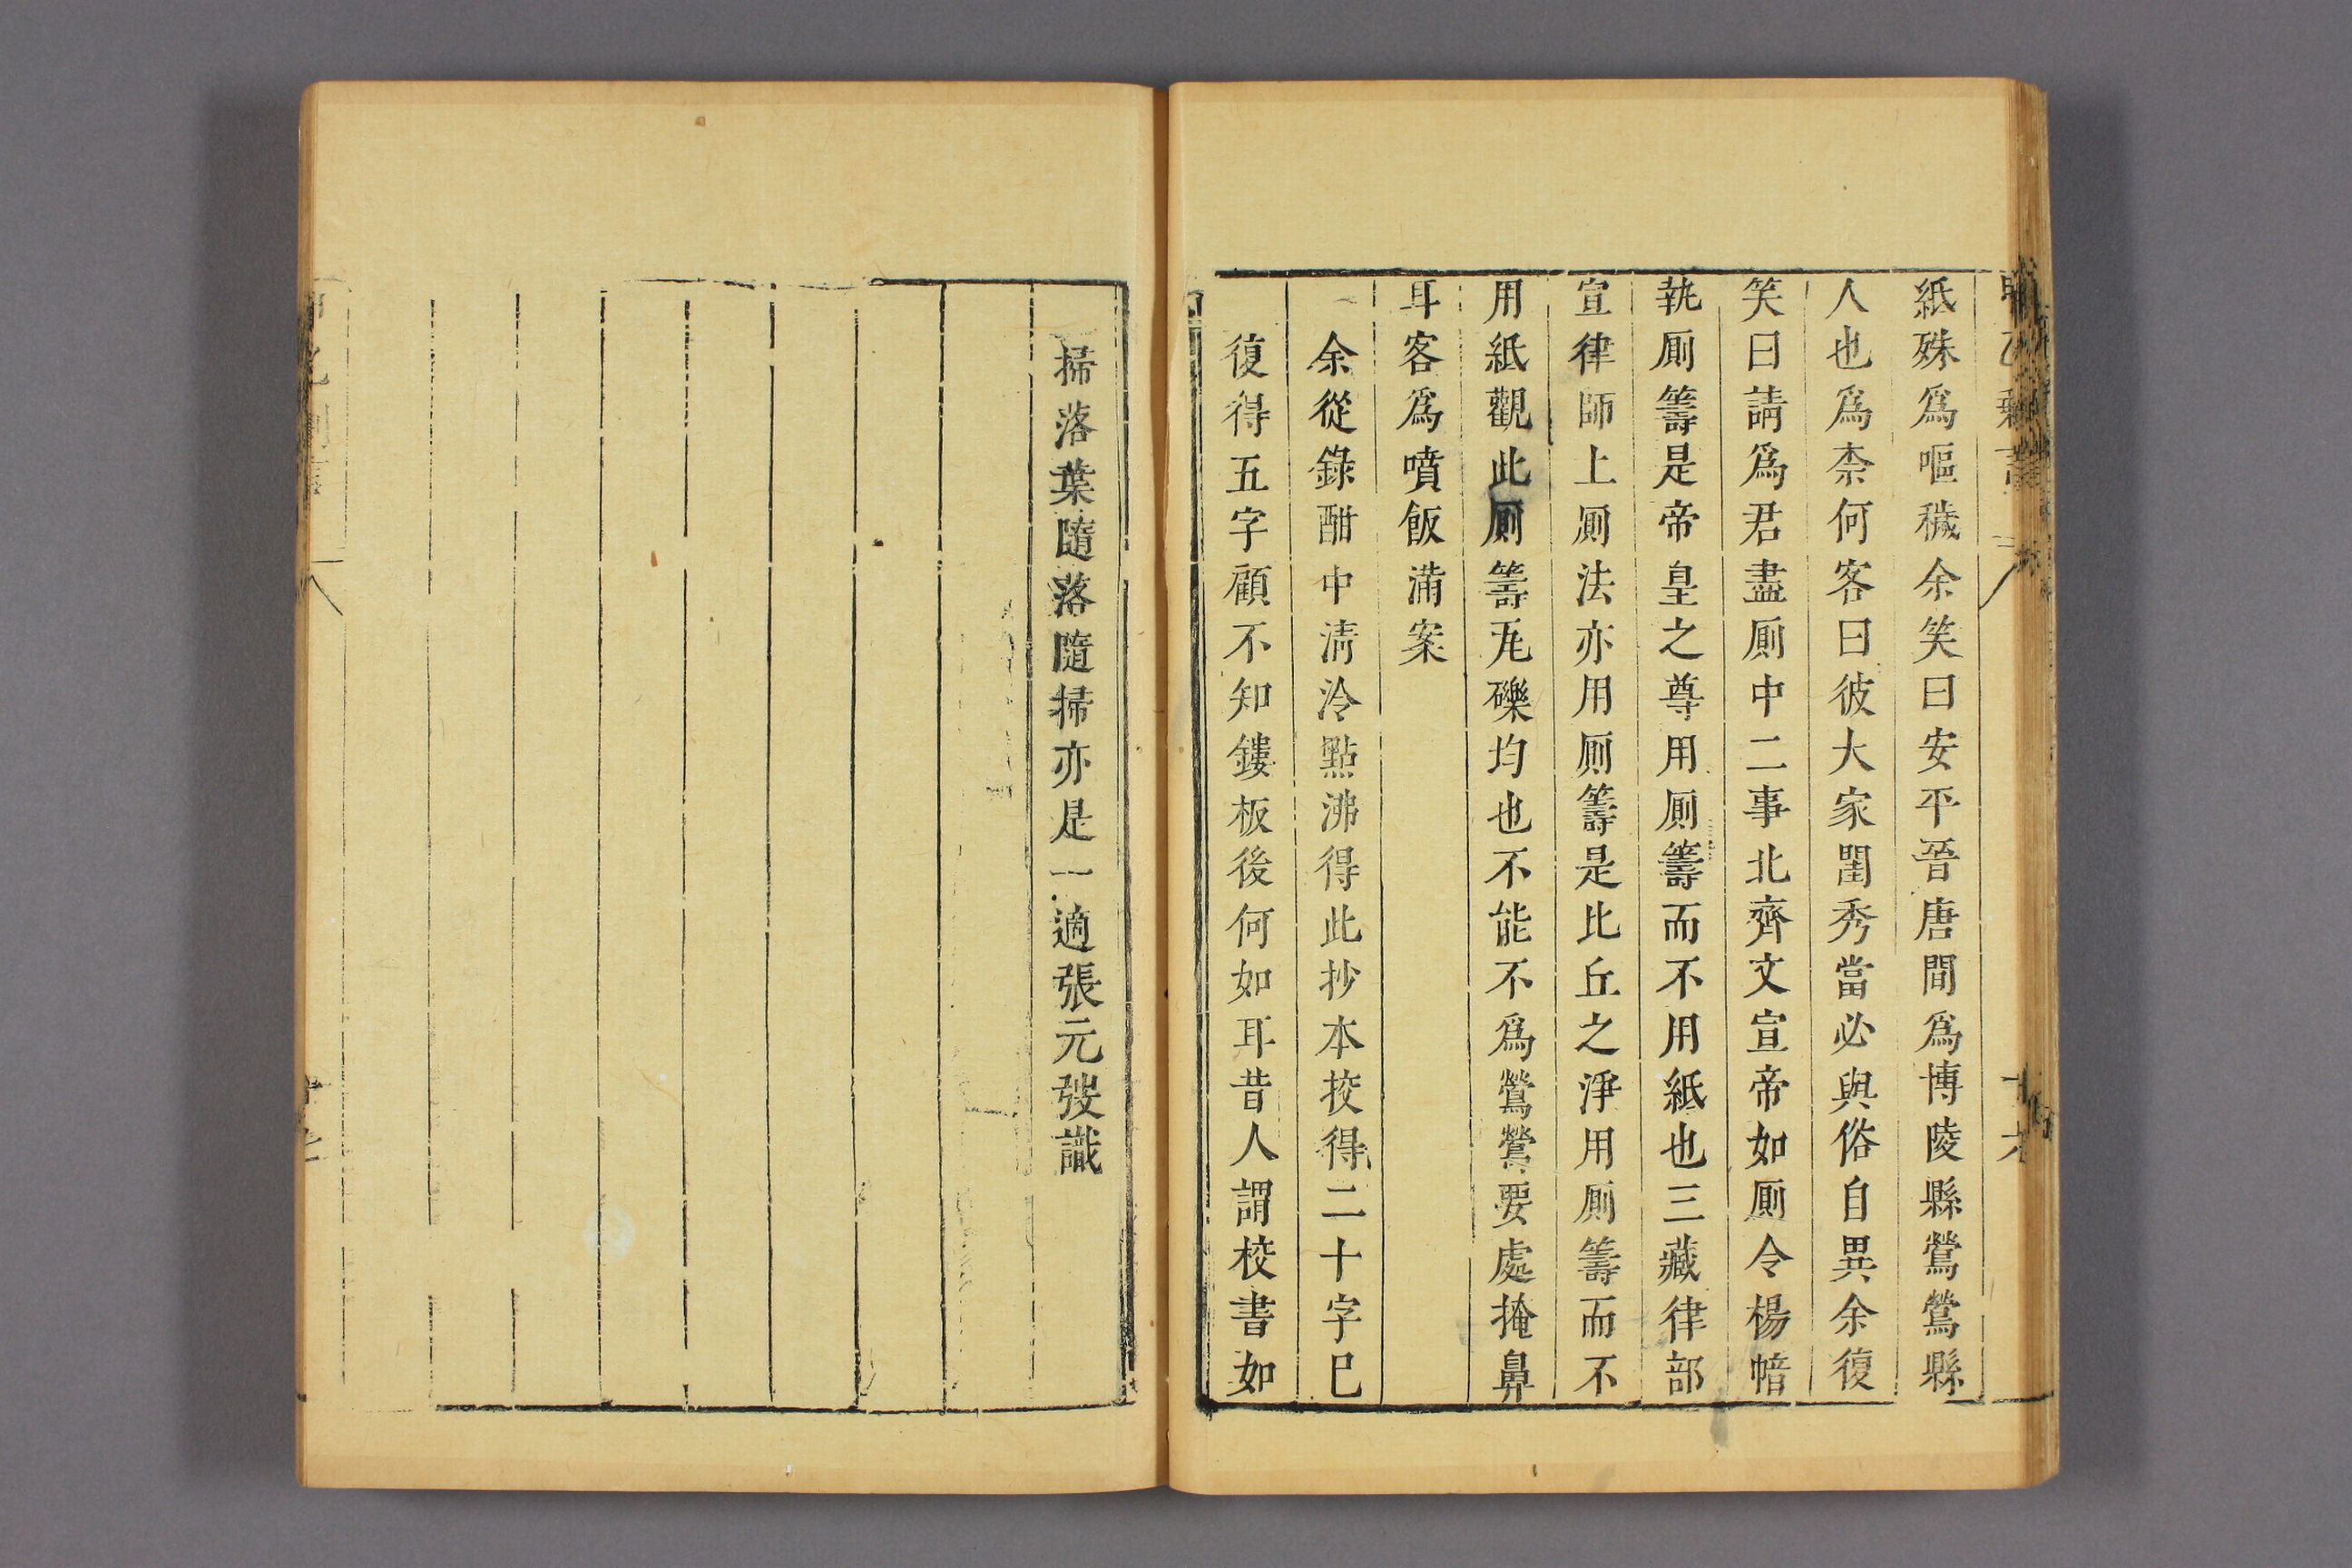 紙殊爲嘔穢余笑曰安平晉唐間爲博陵縣鶯鶯縣
人也爲柰何客曰彼大家閨秀當必與俗自異余復
笑曰請爲君盡厠中二事北齊文宣帝如厠令楊愔
執厠籌是帝皇之尊用厠籌而不用紙也三藏律部
宣律師上厠法亦用厠籌是比丘之淨用厠籌而不
用紙觀此厠籌瓦礫均也不能不爲鶯鶯要處掩鼻
耳客爲噴飯滿案
余從錄酣中淸泠點沸得此抄本挍得二十字巳
復得五字顧不知鏤板後何如耳昔人謂校書如
掃落葉隨落隨掃亦是一適張元弢識